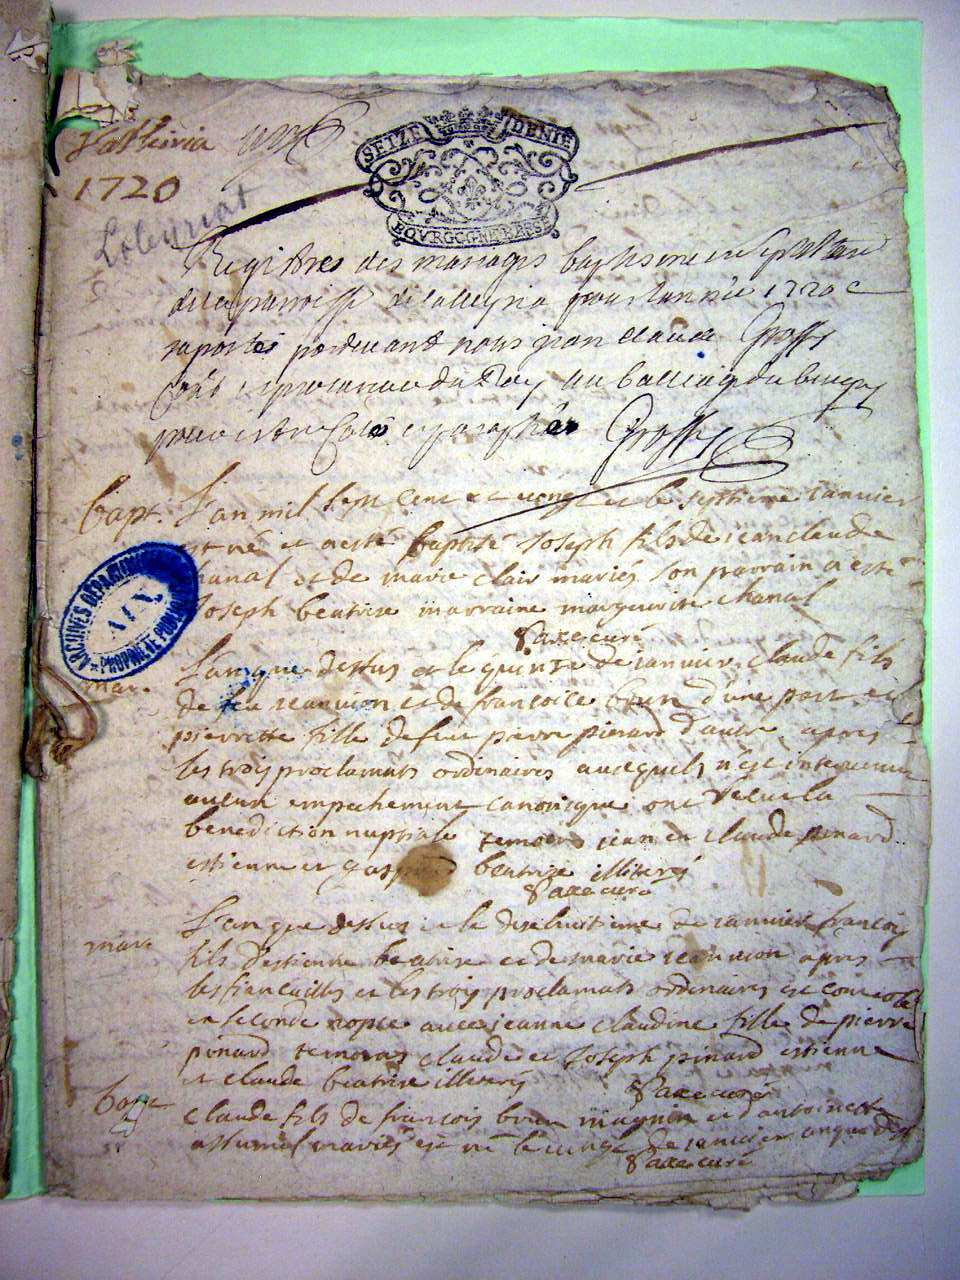 Lalleiria
1720
Laleyriat
SEIZE DENIE
BOVRGOGNE BRESSE
Registres des mariages baptesme et
de la parroisse de lalleyria pour lannée 1720
raportés pardevant nous jean claude Grosss
procureur du Roy au Balliage du bugey
cotté et paraphé Grosss
bapt. L'an mil sept cent et vingt et le septieme janvier
est né et a esté baptisé Joseph fils de jean claude
chanal et de marie clair mariés son parrain a esté
Joseph beatrise marraine marguerite chanal
Saxe curé
ARCHIVES DÉPARTEM
AIN
PROPRIÉTÉ PUBLIQUE
mar. L'an que dessus et le quinze de janvier claude fils
de feu et de francoise d'une part et
pierrette fille de feu pierre pinard d'autre apres
les trois proclamats ordinaires ausquels n'est intervenu
aucun empechement canonique ont receu la
benediction nuptiale temoins jean et claude pinard
estienne et beatrise illiterés
Saxe curé
mar. L'an que dessus et le dixehuitieme de janvier francois
fils d'estienne beatrise et de marie apres
les fiancailles et les trois proclamats ordinaires est
en seconde nopce avec jeanne claudine fille de pierre
pinard temoins claude et Joseph pinard estienne
et claude beatrise illiterés Saxe curé
bapt claude fils de francois et d'antoinette
mariés est né le de janvier an que dessus
Saxe curé